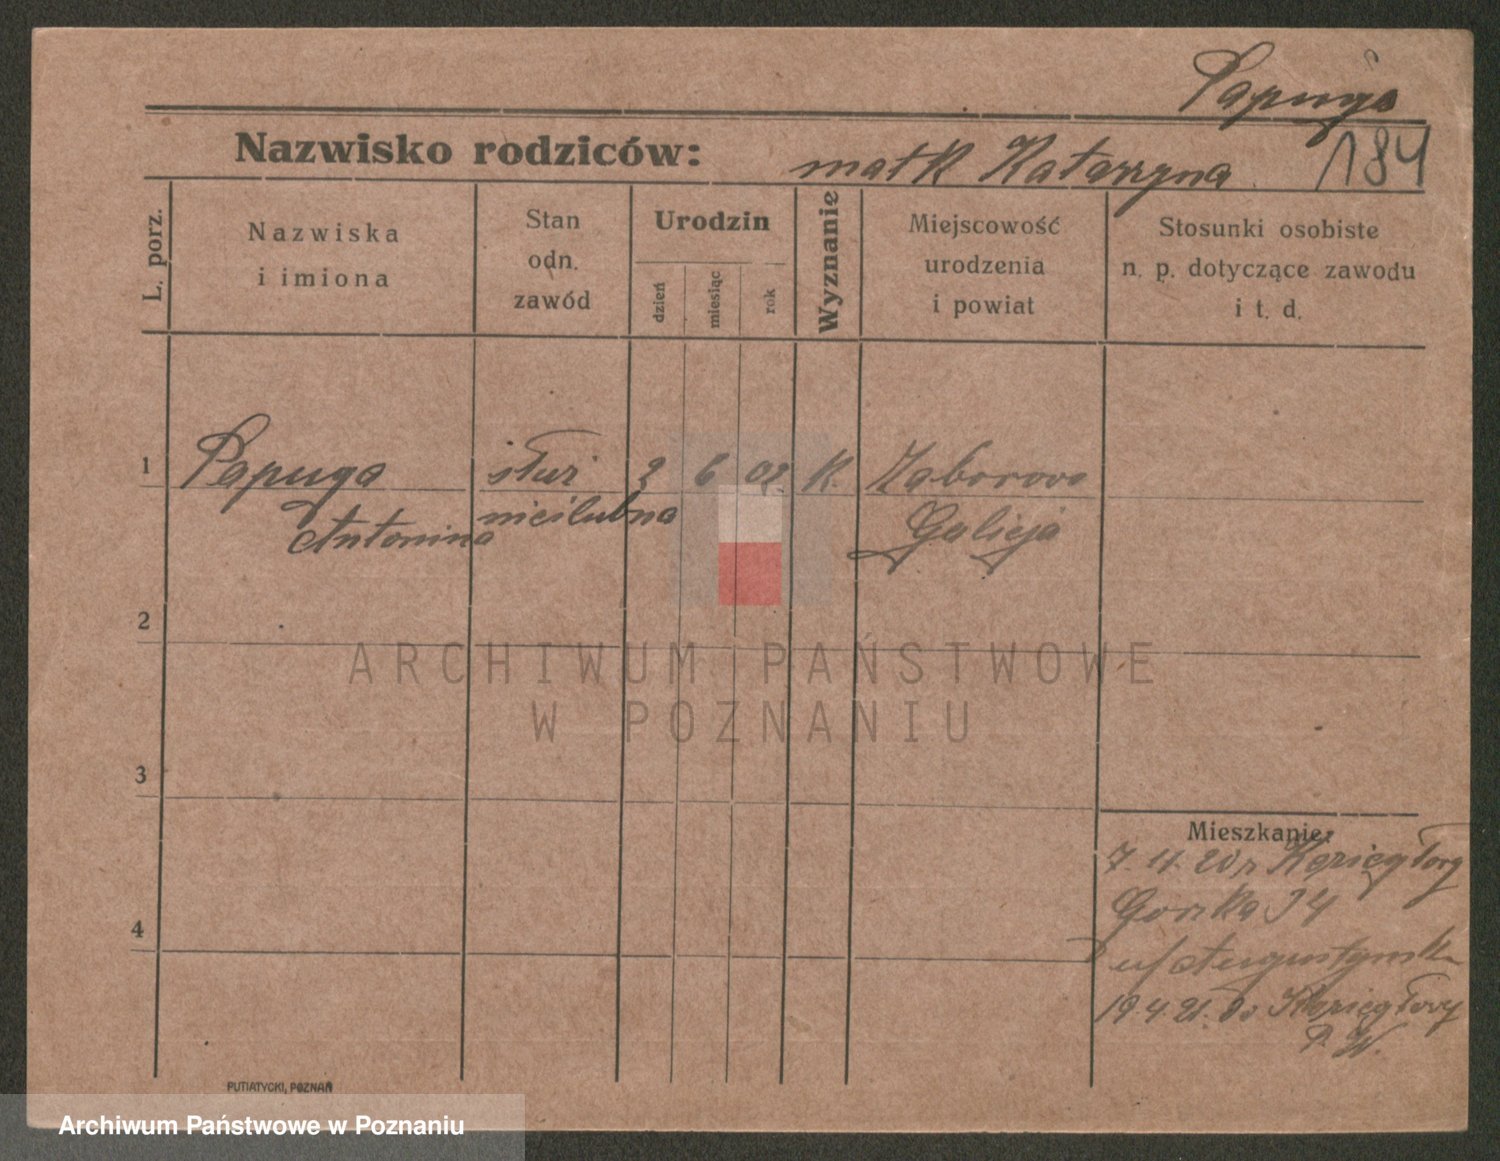 Papuga
Nazwisko rodziców: matk Katarzyna 184
L. porz.
Nazwiska
i imiona
Stan
odn.
zawód
Urodzin
dzień
miesiąc
rok
Wyznanie
Miejscowość
urodzenia
i powiat
Stosunki osobiste
n. p. dotyczące zawodu
i t. d.
1 Papuga służ 2 6 02 K. Zaborowo
Antonina nieślubna Galicja
2
ARCHIWUM PAŃSTWOWE
W POZNANIU
3
Mieszkanie:
7. 11. 20 z
Gorska 34
4
u/ Augustyniak
19.4 21. do
P. W.
PUTIATYCKI, POZNAŃ
Archiwum Państwowe w Poznaniu